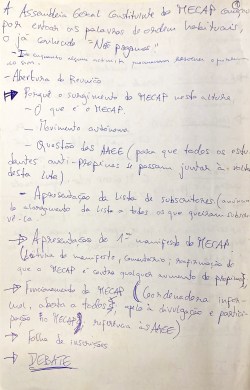 A Assembleia Geral Constituinte do MECAP
por entoar as palavras de ordem habituais,
o já conhecido "Não pagamos"
- Abertura da Reunião
→ Porquê o surgimento do MECAP nesta altura
- O que é o MECAP
- Movimento autónomo
- Questão das AAEE (para que todos os estu-
dantes anti-propinas se possam juntar à volta
desta luta)
- Apresentação da Lista de Subscritores
alargamento da Lista a todos os que queiram subscre-
vê-la
→ Apresentação do 1º manifesto do MECAP
(leitura do manifesto, comentários; reafirmação de
que o MECAP é contra qualquer aumento de propinas)
→ Funcionamento do MECAP (Coordenadora infor-
mal, aberta a todos; apelo à divulgação e partici-
pação no MECAP; referência às AAEE)
→ folha de inscrições
→ DEBATE